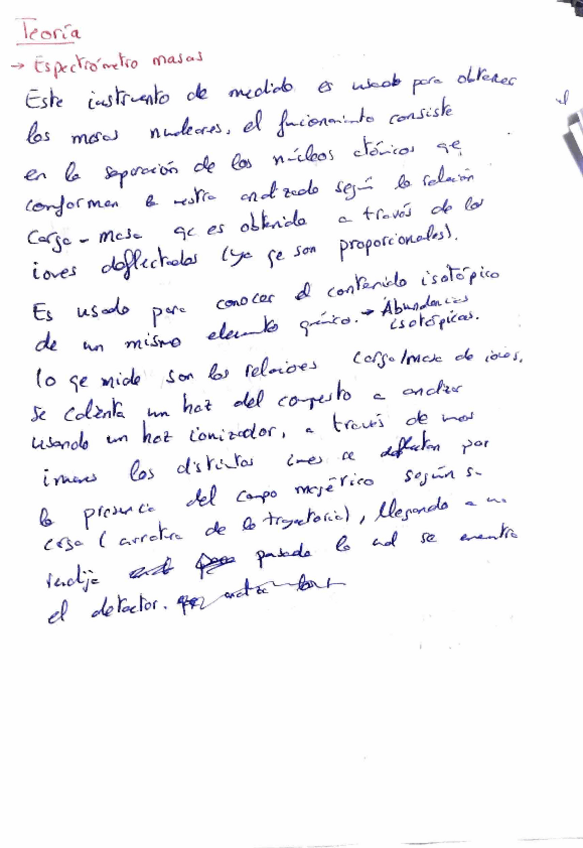 Teoría
→ Espectrómetro masas
Este instrumento de medida es usado para obtener
las masas nucleares, el funcionamiento consiste
en la separación de los núcleos atómicos que
conforman la muestra analizada según la relación
Carga - masa que es obtenida a través de los
iones deflectados (ya que son proporcionales).
Es usado para conocer el contenido isotópico
de un mismo elemento químico. → Abundancias
isotópicas.
Lo que mide son las relaciones carga/masa de iones,
se calienta un haz del compuesto a analizar
usando un haz ionizador, a través de unos
imanes los distintos iones se deflectan por
la presencia del campo magnético según su
carga (curvatura de la trayectoria), llegando a una
rendija pasada la cual se encuentra
el detector.